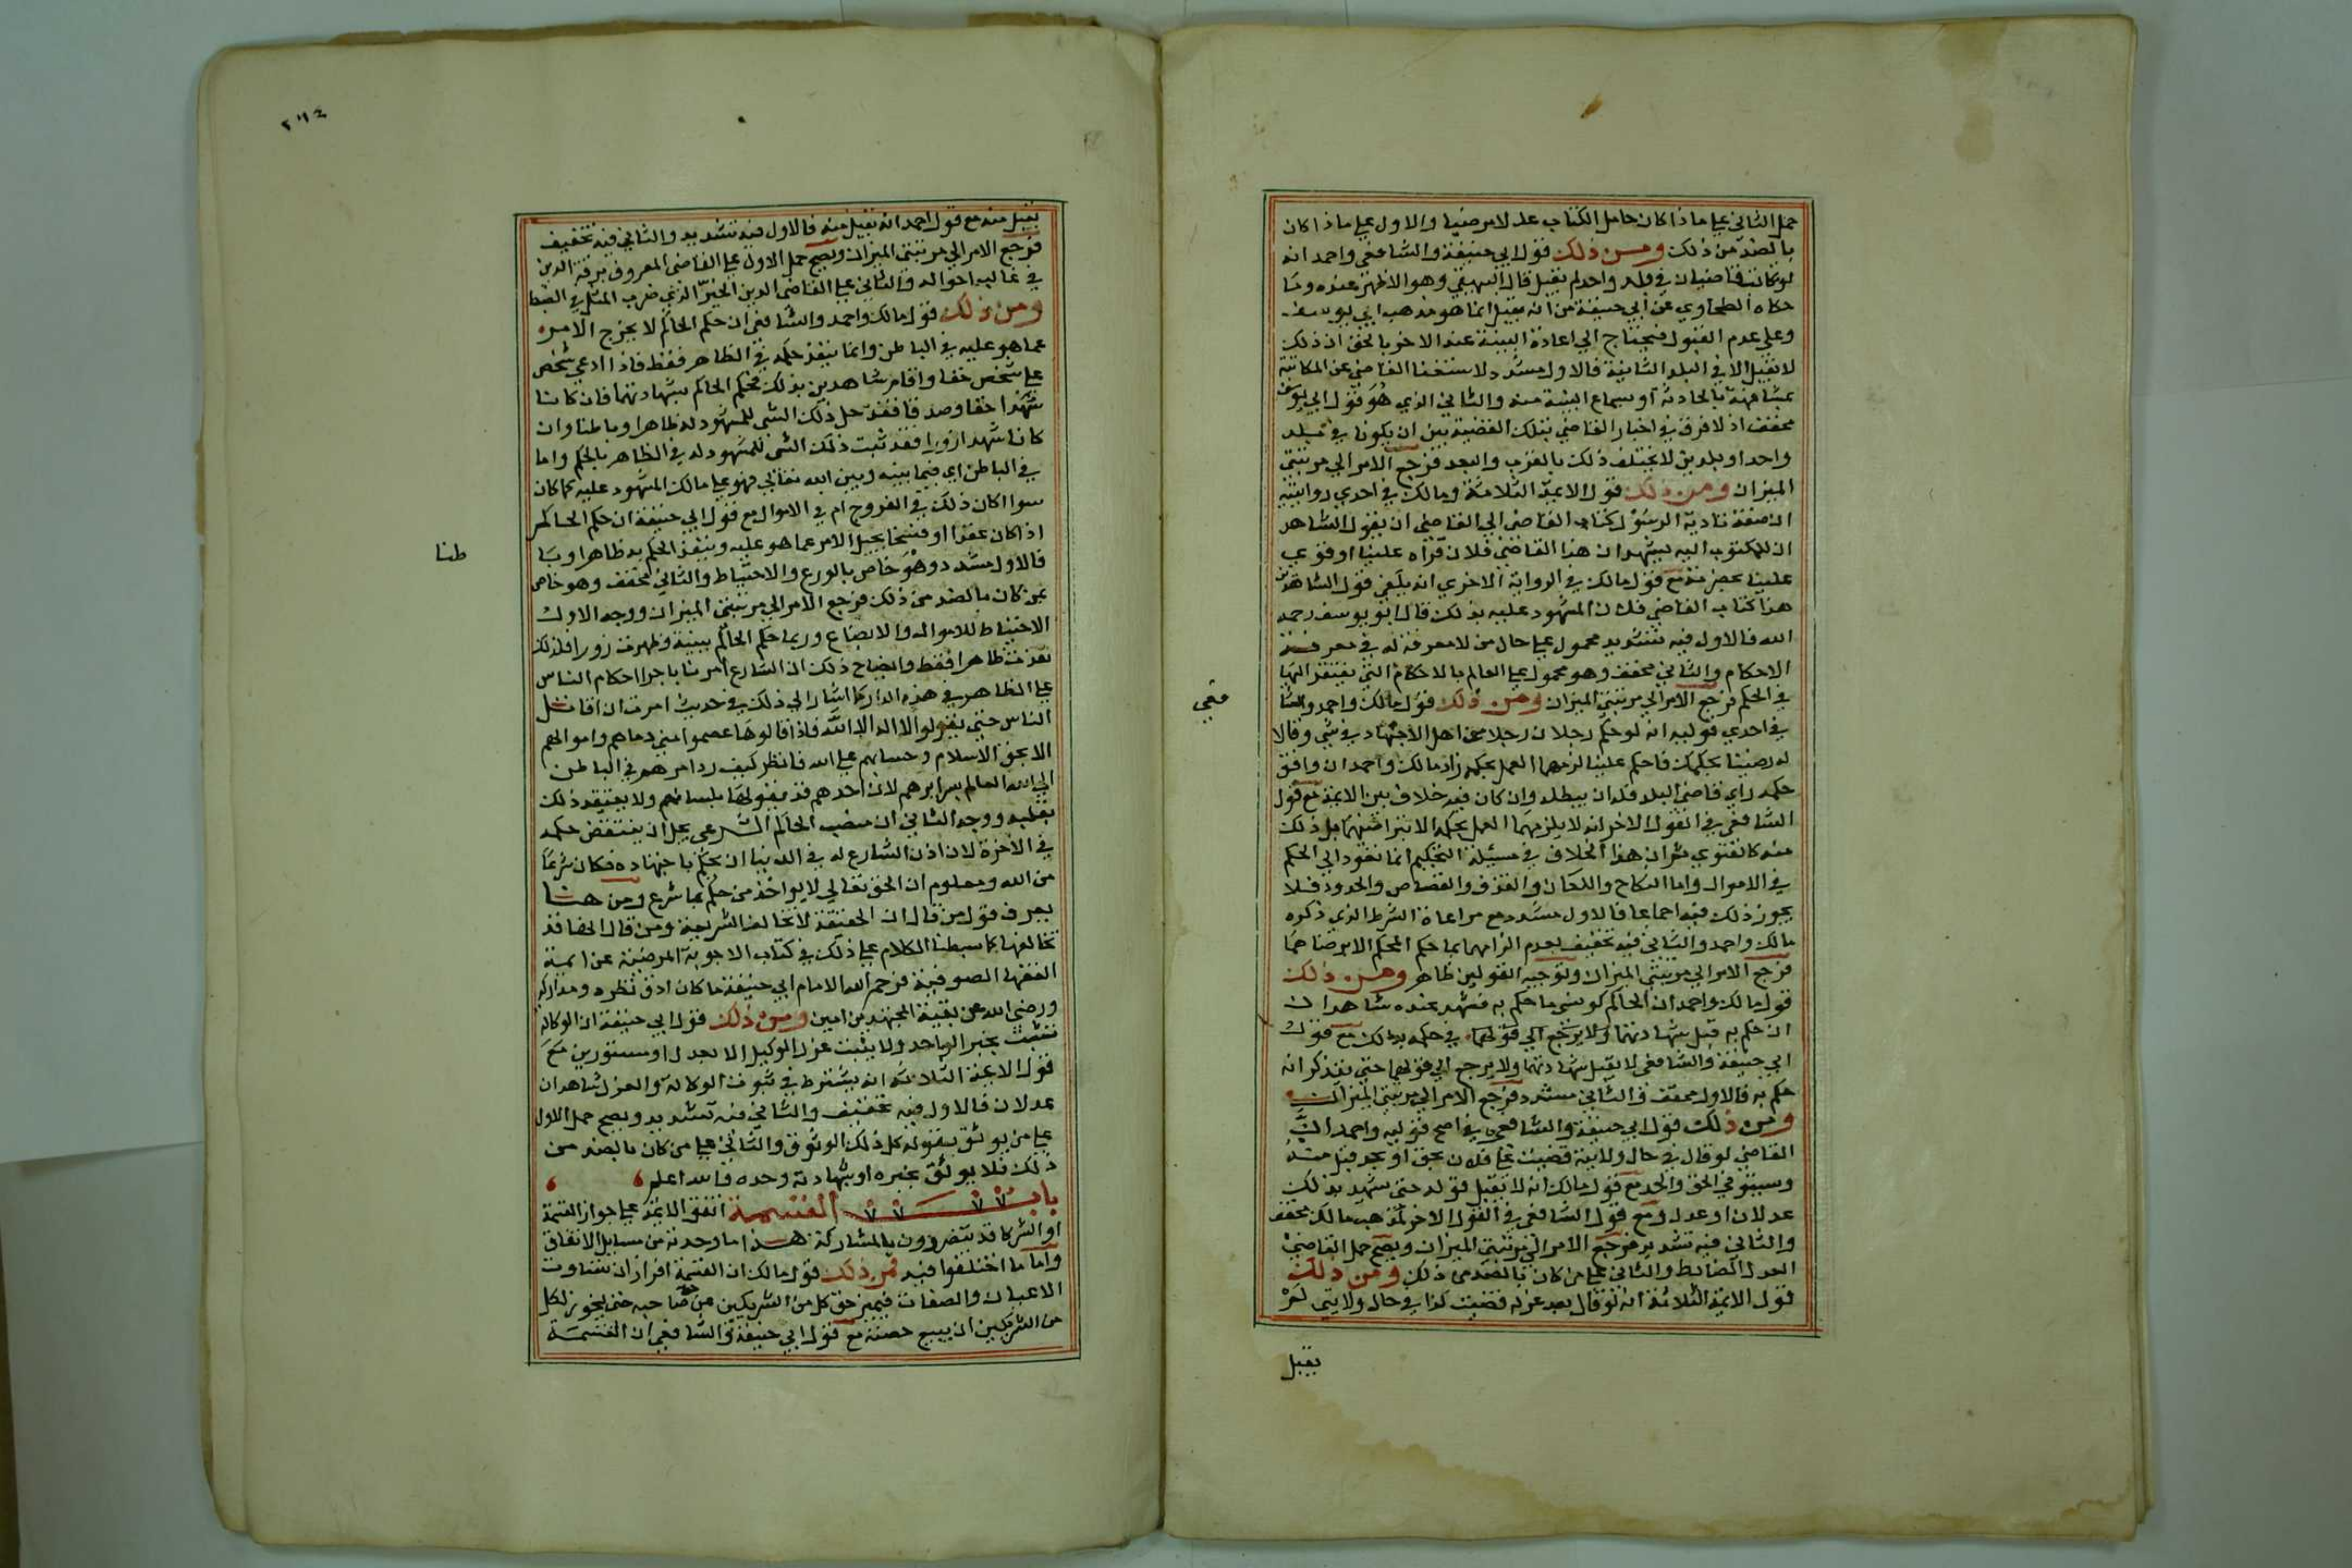 حمل الثاني على ما اذا كان حامل الكتاب عدلا مرضيا والاول على ما اذا كان
بالضد من ذلك ومن ذلك قول ابي حنيفة والشافعي واحمد انه
لو كان قاضيان في بلد واحد لم يقبل قال البيهقي وهو الاظهر عنده وما
حكاه الطحاوي عن ابي حنيفة من انه يقبل انما هو مذهب ابي يوسف
وعلى عدم القبول فيحتاج الي اعادة البينة عند الاخر بالحق اذ ذلك
لا يقبل الا في البلد الثانية فالاول مشدد لاستغنا القاضي عن المكاتبة
بمشافهته بالحادثة او سماع البينة منه والثاني الذي هو قول ابي يوسف
مخفف اذ لا فرق في اخبار القاضي بتلك القضية بين ان يكونا في بلد
واحد او بلدين لا يختلف ذلك بالقرب والبعد فرجع الامر الي مرتبتي
الميزان ومن ذلك قول الايمة الثلاثة ومالك في احدي روايتيه
ان صفة تادية الرسول كتاب القاضي الي القاضي ان يقول الشاهد
ان للمكتوب اليه نشهد ان هذا القاضي فلان قراه علينا او قوي
علينا بحضرته مع قول مالك في الرواية الاخري انه يكفي قول الشاهدين
هذا كتاب القاضي فلان المشهود عليه بذلك قال ابو يوسف رحمه
الله فالاول فيه تشديد محمول على حال من لا معرفة له في معرفة
الاحكام والثاني مخفف وهو محمول على العالم بالاحكام التي يفتقر اليها
في الحكم فرجع الامر الي مرتبتي الميزان ومن ذلك قول مالك واحمد والشا
فعي
في احدي قوليه انه لو حكم رجلان رجلا من اهل الاجتهاد في شي وقالا
له رضينا بحكمك فاحكم علينا لزمهما العمل بحكمه زاد مالك واحمد ان وافق
حكمه راي قاضي البلد فله ان يبطله وان كان فيه خلاف بين الايمة مع قول
الشافعي في القول الاخر انه لا يلزمهما العمل بحكمه الا بتراضيهما بل ذلك
منه كالفتوي ثم ان هذا الخلاف في مسئلة التحكيم انما تعود الي الحكم
في الاموال واما النكاح واللعان والقذف والقصاص والحدود فلا
يجوز ذلك فيه اجماعا فالاول مشدد مع مراعاة الشرط الذي ذكره
مالك واحمد والثاني فيه تخفيف بعدم الزامهما بما حكم المحكم الا برضاهما
فرجع الامر الي مرتبتي الميزان وتوجيه القولين ظاهر ومن ذلك
قول مالك واحمد ان الحاكم لو نسي ما حكم به فشهد عنده شاهدان
انه حكم به قبل شهادتهما ولا يرجع الي قولهما في حكمه بذلك مع قول
ابي حنيفة والشافعي لا يقبل شهادتهما ولا يرجع الي قولهما حتي يتذكر انه
حكم به فالاول مخفف والثاني مشدد فرجع الامر الي مرتبتي الميزان
ومن ذلك قول ابي حنيفة والشافعي في اصح قوليه واحمد ان
القاضي لو قال في حال ولايته قضيت على فلان بحق او بحد قبل منه
وسيتوفي الحق والحد مع قول مالك انه لا يقبل قوله حتي يشهد بذلك
عدلان او عدل ومع قول الشافعي في القول الاخر لمذهب مالك مخفف
والثاني فيه تشديد فرجع الامر الي مرتبتي الميزان ويصح حمل القاضي
العدل الضابط والثاني على من كان بالضد من ذلك ومن ذلك
قول الايمة الثلاثة انه لو قال بعد عزله قضيت كذا في حال ولايتي لم
يقبل
٢٩٤
يقبل منه مع قول احمد انه يقبل منه فالاول فيه تشديد والثاني فيه تخفيف
فرجع الامر الي مرتبتي الميزان ويصح حمل الاول على القاضي المعروف برقة الدين
في غالب احواله والثاني على القاضي الدين الخير الذي ضرب المثل في الضبط
ومن ذلك قول مالك واحمد والشافعي ان حكم الحاكم لا يخرج الامر
عما هو عليه في الباطن وانما ينفذ حكمه في الظاهر فقط فاذا ادعي شخص
على شخص حقا واقام شاهدين بذلك فحكم الحاكم بشهادتهما فان كانا
شهدا حقا وصدقا فقد حل ذلك الشي للمشهود له ظاهرا وباطنا وان
كانا شهدا زورا فقد ثبت ذلك الشي للمشهود له في الظاهر بالحكم واما
في الباطن اي فيما بينه وبين الله تعالي فهو على مالك المشهود عليه كما كان
سوا اكان ذلك في الفروج ام في الاموال مع قول ابي حنيفة ان حكم الحاكم
اذا كان عقدا او فسخا يحيل الامر عما هو عليه وينفذ الحكم به ظاهرا وبا
طنا
فالاول مشدد وهو خاص بالورع والاحتياط والثاني مخفف وهو خاص
بمن كان بالضد من ذلك فرجع الامر الي مرتبتي الميزان ووجه الاول
الاحتياط للاموال والابضاع وربما حكم الحاكم ببينة وظهرت زورا فلذلك
نفذت ظاهرا فقط وايضاح ذلك ان الشارع امرنا باجرا احكام الناس
على الظاهر في هذه الدار كما اشار الي ذلك في حديث امرت ان اقاتل
الناس حتي يقولوا لا اله الا الله فاذا قالوها عصموا مني دماهم واموالهم
الا بحق الاسلام وحسابهم على الله فانظر كيف رد امرهم في الباطن
الي الله العالم بسرايرهم لان احدهم قد يقولها بلسانهم ولا يعتقد ذلك
بقلبه ووجه الثاني ان منصب الحاكم الشرعي يجل ان ينتقض حكمه
في الاخرة لان اذن الشارع له في الدنيا ان يحكم باجتهاده فكان شرعا
من الله ومعلوم ان الحق تعالي لا يواخذ من حكم بما شرع ومن هنا
يعرف قول من قال ان الحقيقة لا تخالف الشريعة ومن قال انها قد
تخالفها كما بسطنا الكلام على ذلك في كتاب الاجوبة المرضية عن ايمة
الفقها الصوفية فرحم الله الامام ابي حنيفة ما كان ادق نظره ومداركه
ورضي الله عن بقية المجتهدين امين ومن ذلك قول ابي حنيفة ان الوكالة
تثبت بخبر الواحد ولا يثبت عزل الوكيل الا بعدل او مستورين مع
قول الايمة الثلاثة انه يشترط في ثبوت الوكالة والعزل شاهدان
عدلان فالاول فيه تخفيف والثاني فيه تشديد ويصح حمل الاول
على من يوثق بقوله كل ذلك الوثوق والثاني على من كان بالضد من
ذلك فلا يوثق بخبره او بشهادته وحده فالله اعلم
باب القسمة اتفق الايمة على جواز القسمة
او الشركا قد يتضررون بالمشاركة هذا ما وجدته من مسايل الاتفاق
واما ما اختلفوا فيه فمن ذلك قول مالك ان القسمة افراز ان تفاوت
الاعيان والصفات فيميز حق كل من الشريكين من صاحبه حتي يجوز لكل
من الشريكين ان يبيع حصته مع قول ابي حنيفة والشافعي ان القسمة